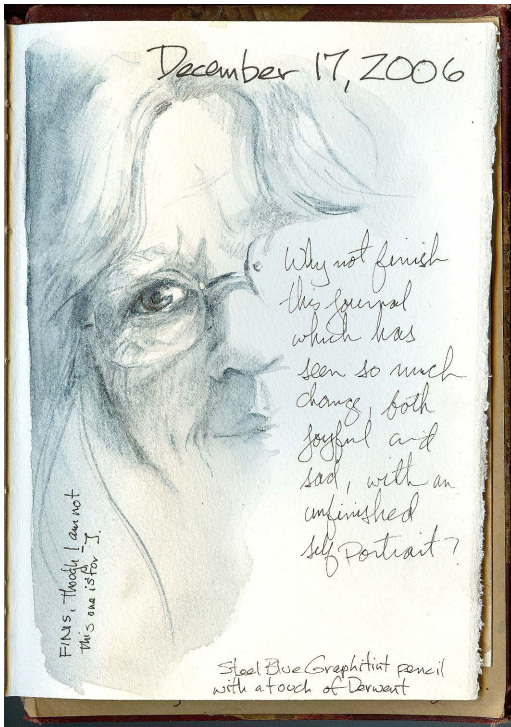 December 17, 2006
Why not finish
this journal
which has
seen so much
change, both
joyful and
sad, with an
unfinished
self portrait?
FINIS, Though I am not
this one is for J.
Steel Blue Graphitint pencil
with a touch of Derwent